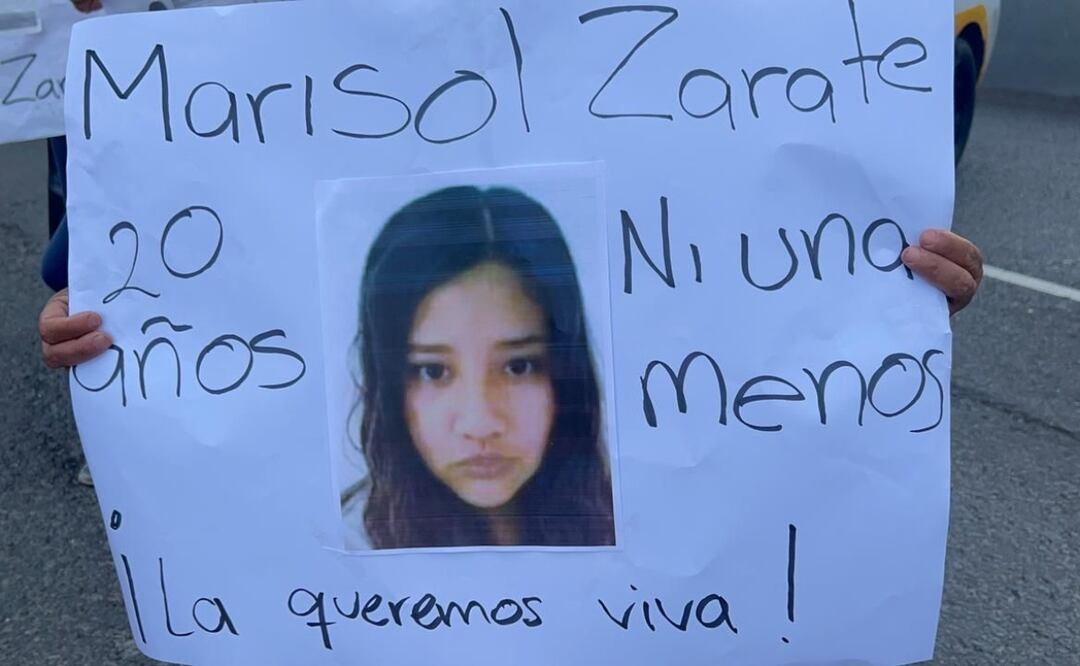 Zar
Marisol Zarate
20
años
Ni una
menos
¡La queremos viva!